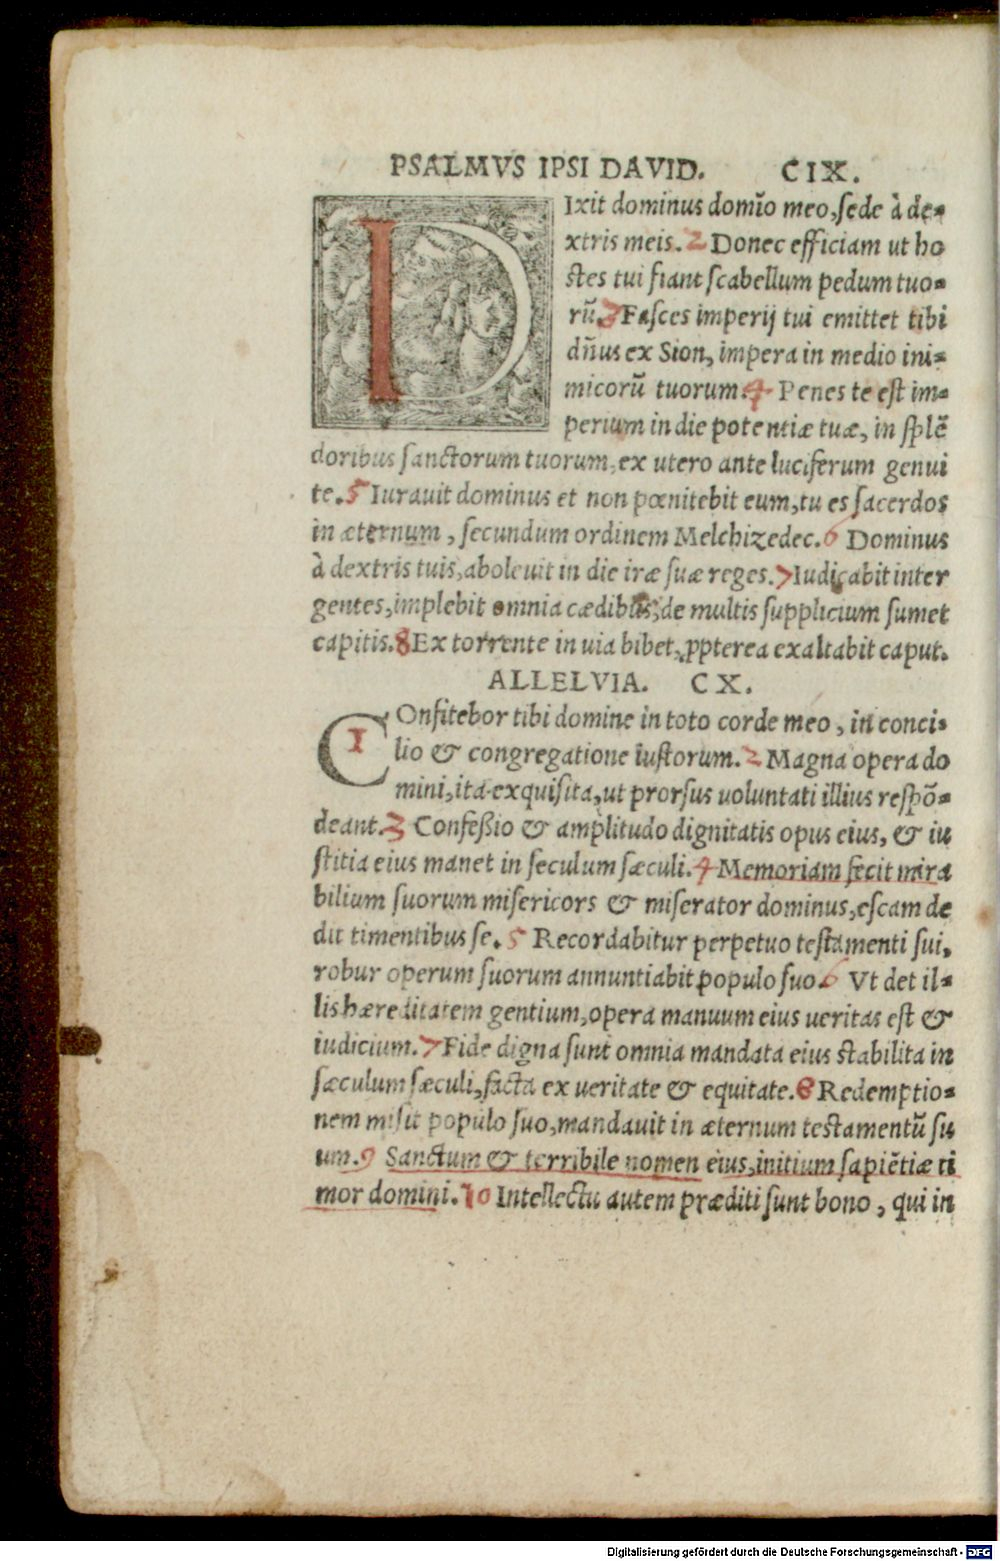 PSALMVS IPSI DAVID. CIX.
DIxit dominus domīo meo, sede à de=
xtris meis. 2 Donec efficiam ut ho
stes tui fiant scabellum pedum tuo=
rū. 3 Fasces imperij tui emittet tibi
dn̄us ex Sion, impera in medio ini=
micorū tuorum. 4 Penes te est im=
perium in die potentiæ tuæ, in splē
doribus sanctorum tuorum, ex utero ante luciferum genui
te. 5 Iurauit dominus et non pœnitebit eum, tu es sacerdos
in æternum, secundum ordinem Melchizedec. 6 Dominus
à dextris tuis, aboleuit in die iræ suæ reges. 7 Iudicabit inter
gentes, implebit omnia cædibus, de multis supplicium sumet
capitis. 8 Ex torrente in uia bibet, ꝓpterea exaltabit caput.
ALLELVIA. CX.
1 COnfitebor tibi domine in toto corde meo, in conci=
lio & congregatione iustorum. 2 Magna opera do
mini, ita exquisita, ut prorsus uoluntati illius respō=
deant. 3 Confeßio & amplitudo dignitatis opus eius, & iu
stitia eius manet in seculum sæculi. 4 Memoriam fecit mira
bilium suorum misericors & miserator dominus, escam de
dit timentibus se. 5 Recordabitur perpetuo testamenti sui,
robur operum suorum annuntiabit populo suo. 6 Vt det il=
lis hæreditatem gentium, opera manuum eius ueritas est &
iudicium. 7 Fide digna sunt omnia mandata eius stabilita in
sæculum sæculi, facta ex ueritate & equitate. 8 Redemptio=
nem misit populo suo, mandauit in æternum testamentū su
um. 9 Sanctum & terribile nomen eius, initium sapiētiæ ti
mor domini. 10 Intellectu autem præditi sunt bono, qui in
Digitalisierung gefördert durch die Deutsche Forschungsgemeinschaft - DFG